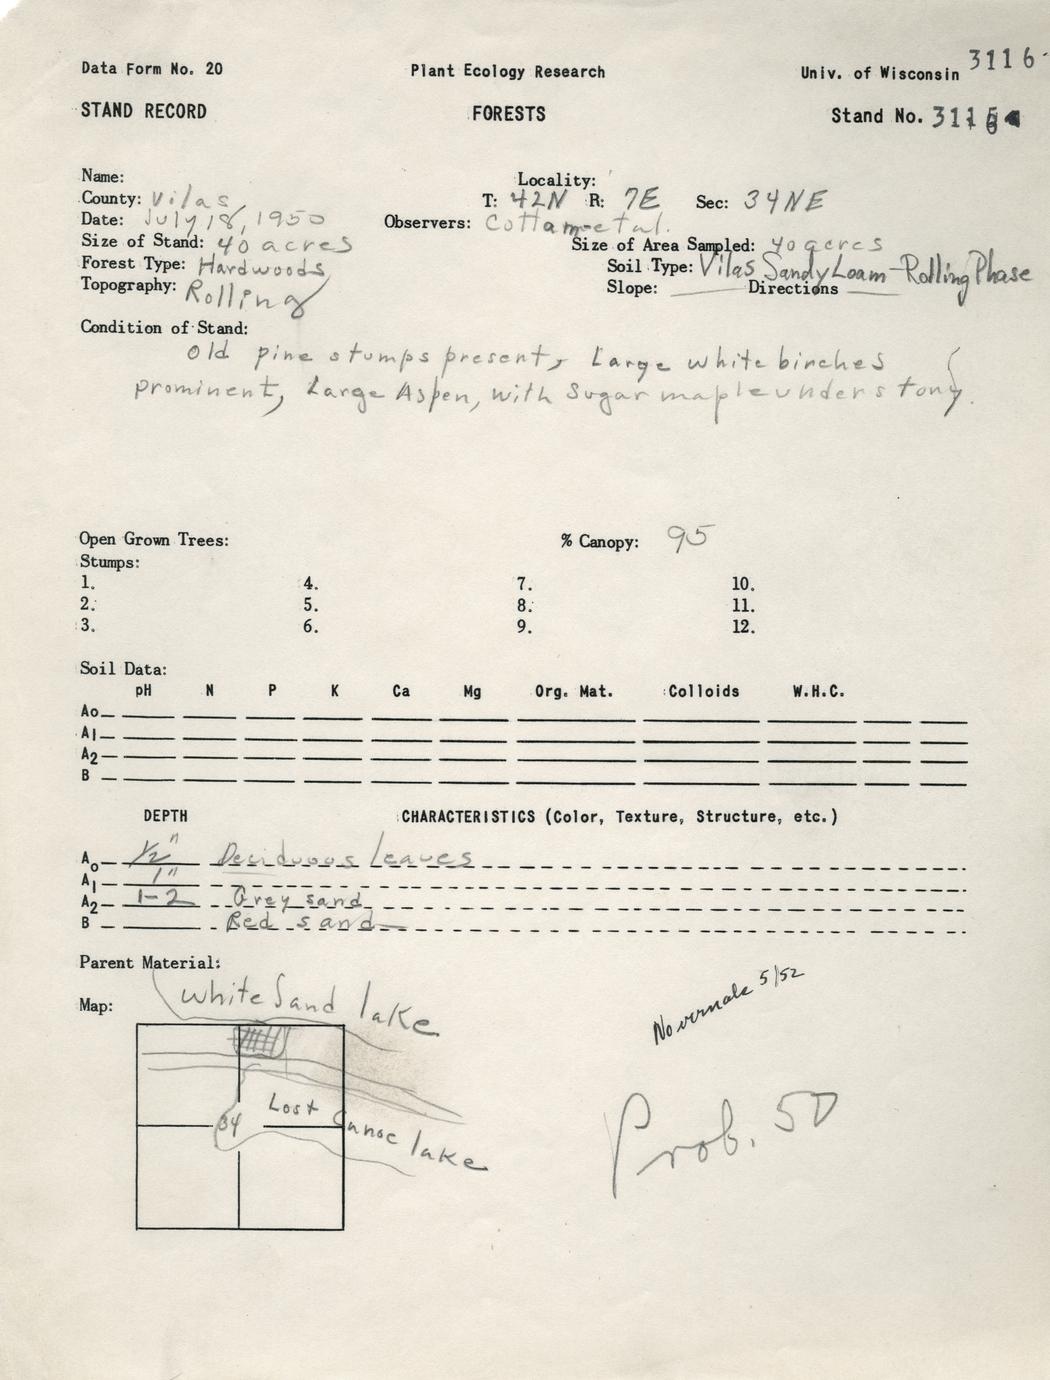 3116
Data Form No. 20 Plant Ecology Research Univ. of Wisconsin
STAND RECORD FORESTS Stand No. 3116
Name: Locality:
County: Vilas T: 42N R: 7E Sec: 34NE
Date: July 18, 1950 Observers: Cottam et al.
Size of Stand: 40 acres Size of Area Sampled: 40 acres
Forest Type: Hardwoods Soil Type: Vilas Sandy Loam - Rolling Phase
Topography: Rolling Slope: Directions
Condition of Stand:
Old pine stumps present, Large white birches
prominent, Large Aspen, with Sugar maple understory.
Open Grown Trees: % Canopy: 95
Stumps:
1. 4. 7. 10.
2. 5. 8. 11.
3. 6. 9. 12.
Soil Data:
pH N P K Ca Mg Org. Mat. Colloids W.H.C.
Ao
A1
A2
B
DEPTH CHARACTERISTICS (Color, Texture, Structure, etc.)
Ao 1/2" Deciduous leaves
A1 1"
A2 1-2 Grey sand
B Red sand
Parent Material:
Map: White Sand lake
No vernals 5/52
34 Lost Canoe lake
Prob. 50